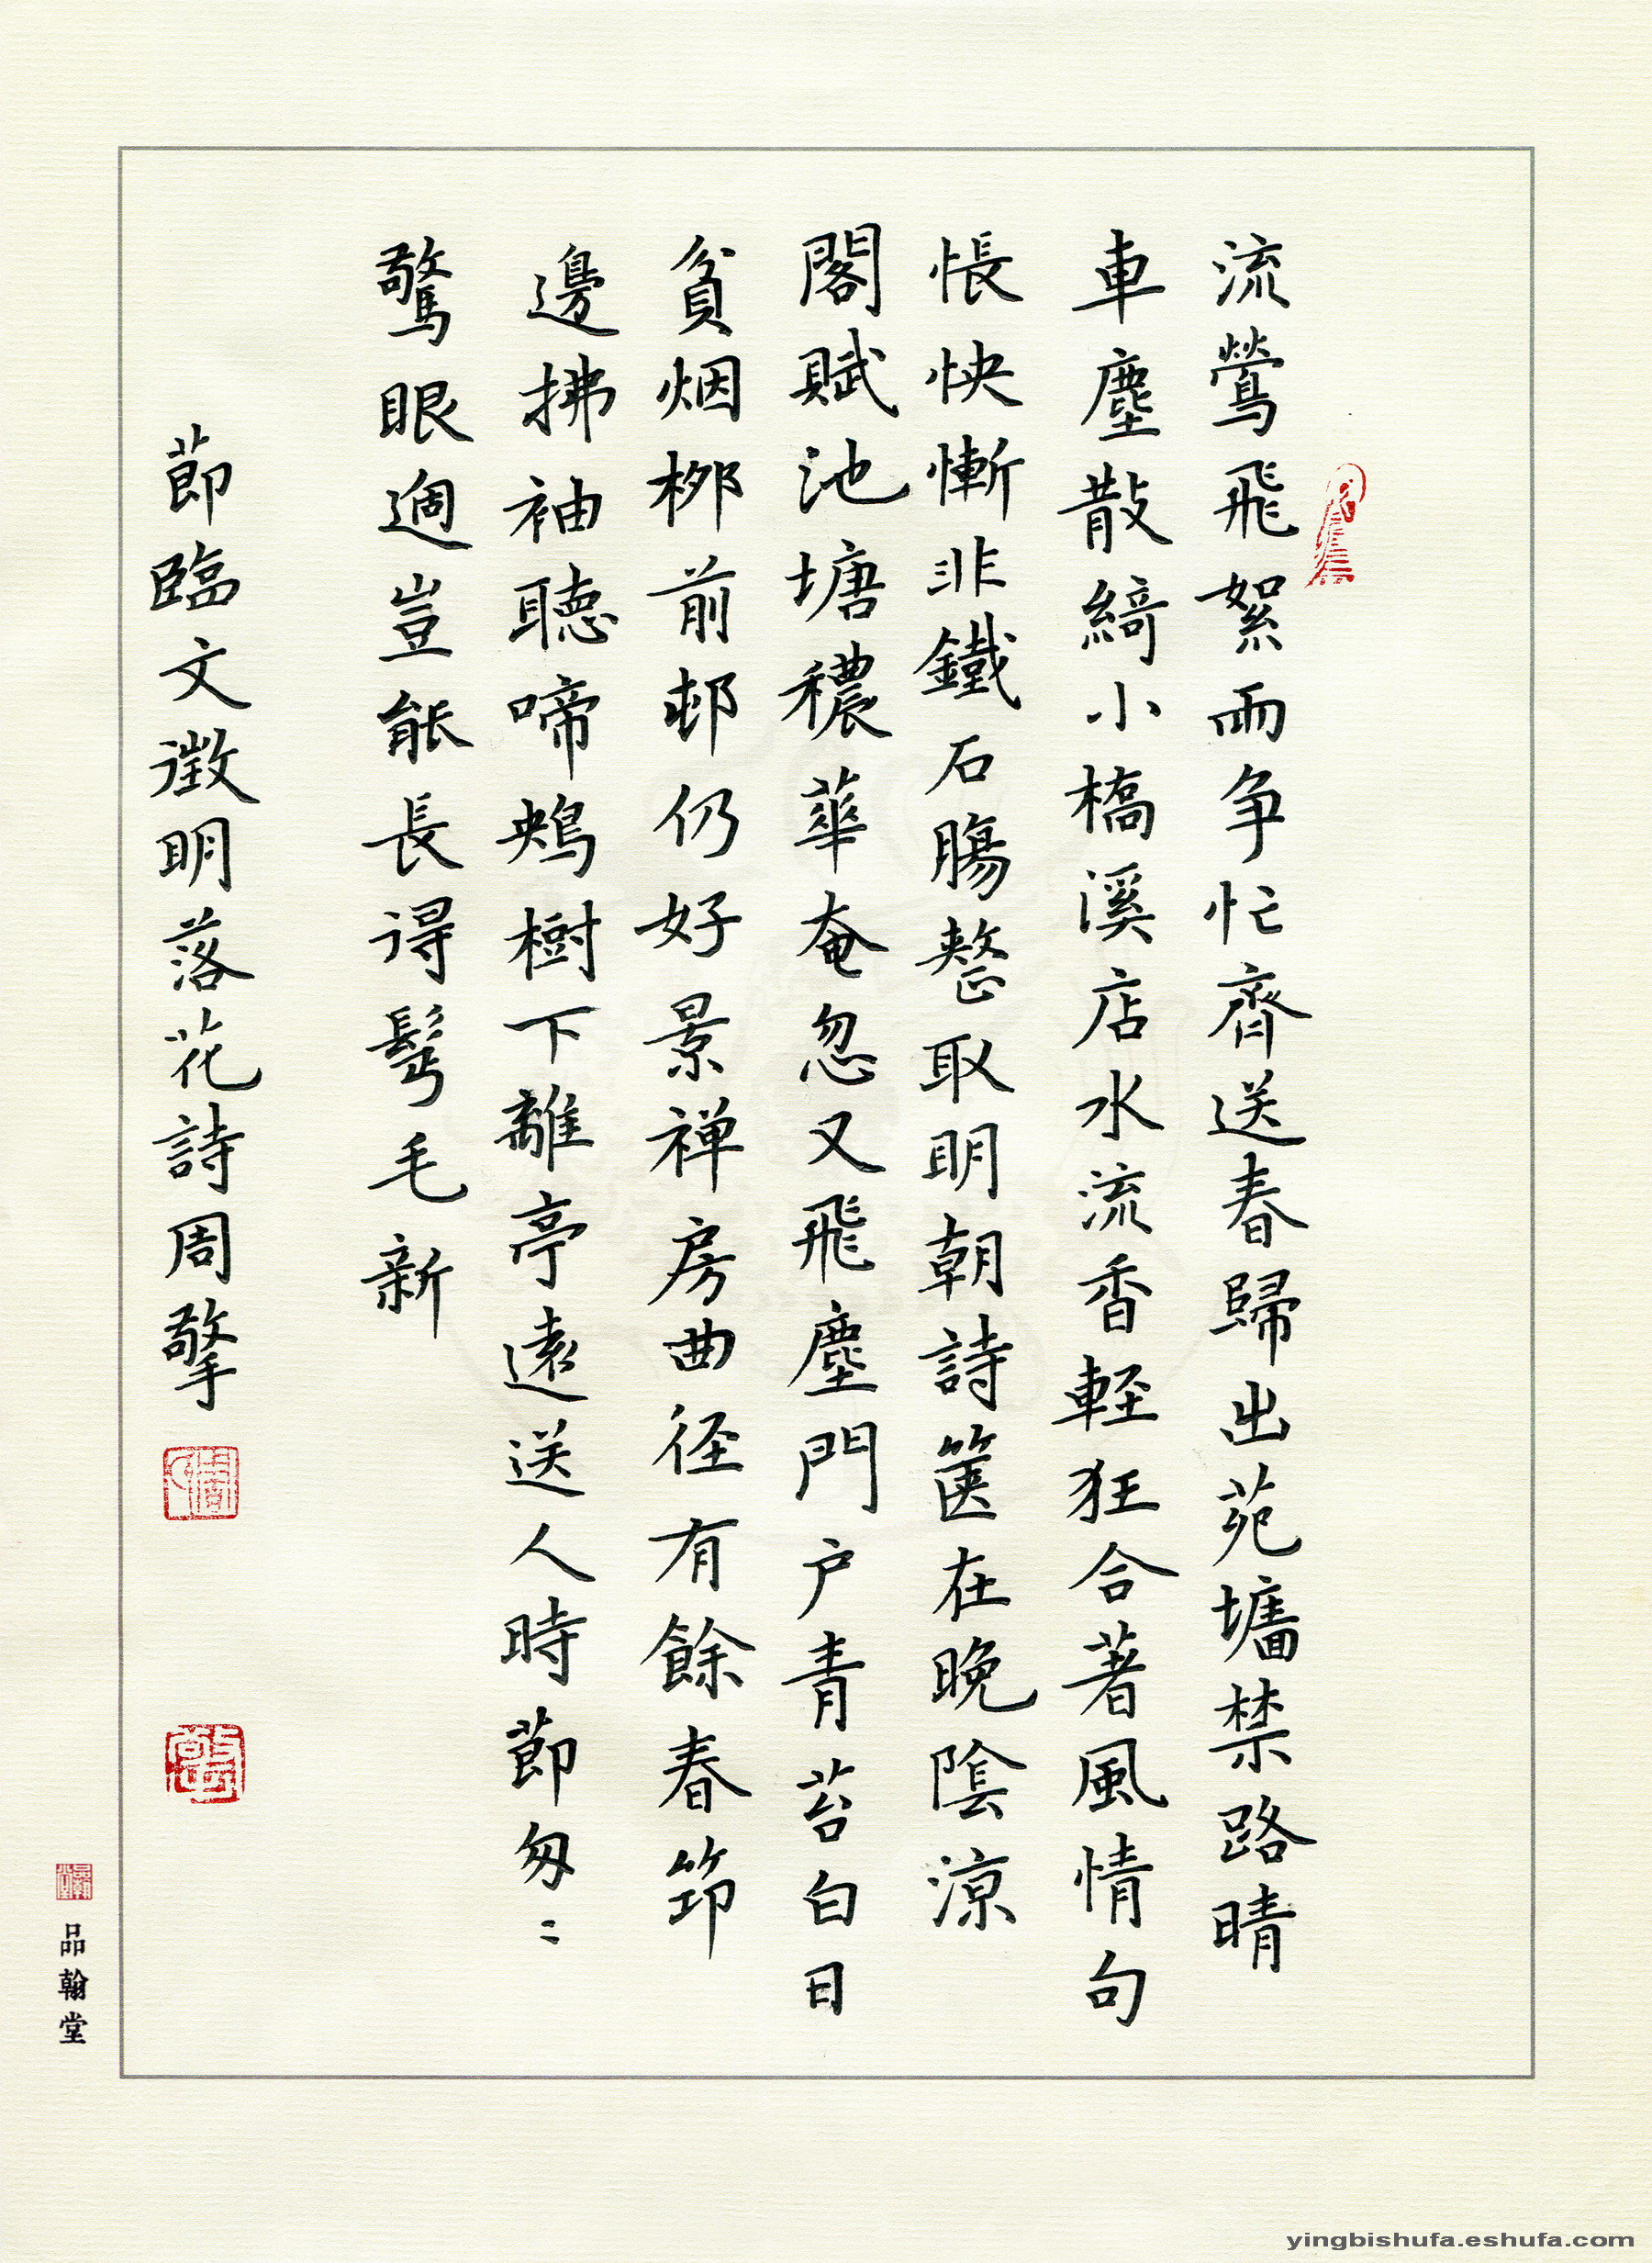 流鶯飛絮兩争忙齊送春歸出苑墻禁路晴
車塵散綺小橋溪店水流香輕狂合著風情句
悵怏慚非鐵石腸整取明朝詩篋在晚陰涼
閣賦池塘穠華奄忽又飛塵門户青苔白日
貧烟栁前邨仍好景禅房曲径有餘春筇
邊拂袖聽啼鴂樹下離亭遠送人時莭匆〻
驚眼過豈能長得髩毛新
莭臨文徵明落花詩周擎
品翰堂
yingbishufa.eshufa.com